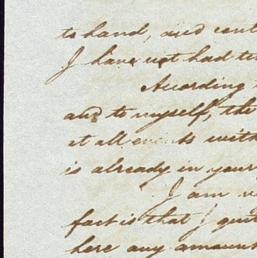 to hand, and cont
I have not had ti
According
and to myself, the
at all events with
is already in your
I am
fact is that I quit
here any amount